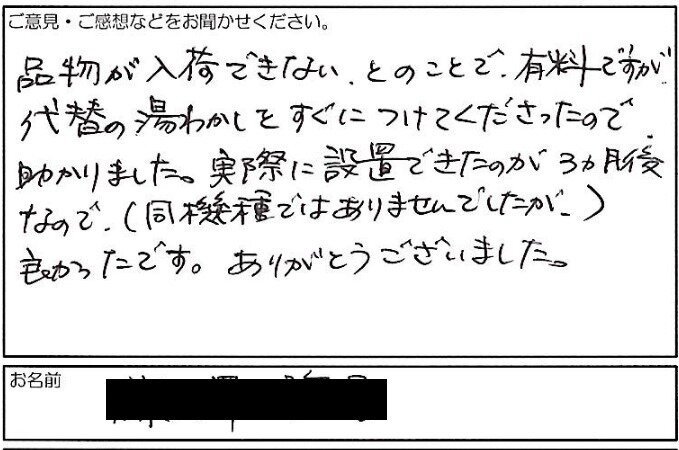 ご意見・ご感想などをお聞かせください。
品物が入荷できない、とのことで、有料ですが
代替の湯わかしをすぐにつけてくださったので
助かりました。実際に設置できたのが3ヵ月後
なので、(同機種ではありませんでしたが、)
良かったです。ありがとうございました。
お名前